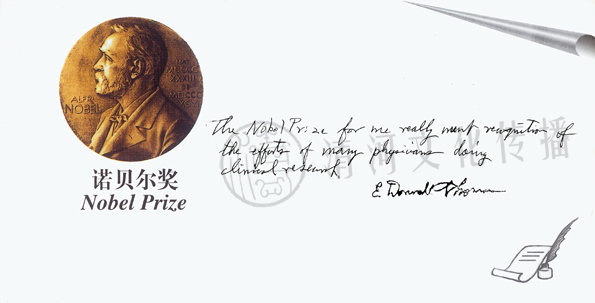 ALFR.
NOBEL
诺贝尔奖
Nobel Prize
The Nobel Prize for me really meant recognition of
the efforts of many physicians doing
clinical research
E. Donnall Thomas
清河文化传播